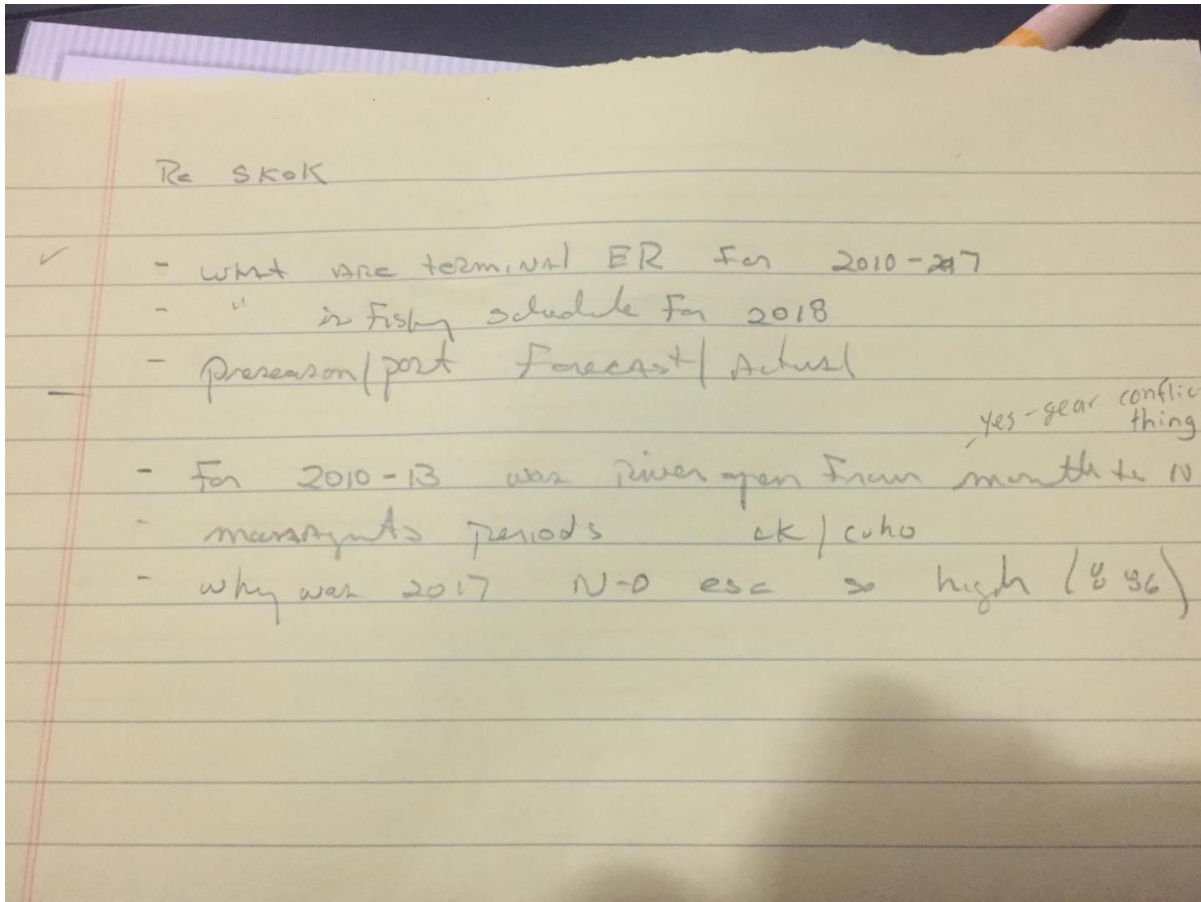 Re SKOK
✓ - what are terminal ER for 2010-2017
- " in fishing schedule for 2018
- preseason/post forecast/Actual
yes-gear conflic
thing
- For 2010-13 was River open From month to N
- managmnts periods ck/coho
- why was 2017 N-O esc so high